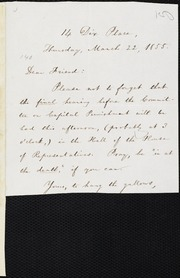 14 Dix Place,
Thursday, March 22, 1855.
Dear Friend:
Please not to forget that
the final hearing before the Committee
on Capital Punishment will be
had this afternoon, (probably at 3
o'clock,) in the Hall of the House
of Representatives. Pray, be "in at
the death," if you can.
Yours, to hang the gallows,